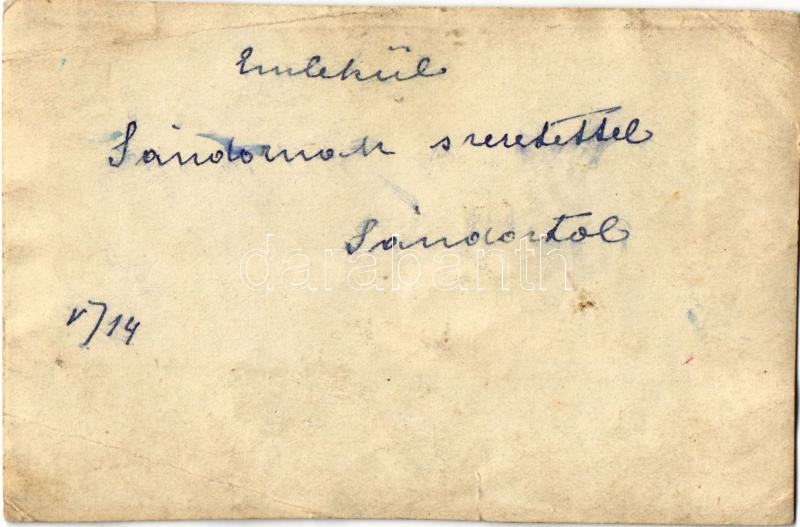 Emlekül
Sándornak szeretettel
Sándortol
darabanth
V/14